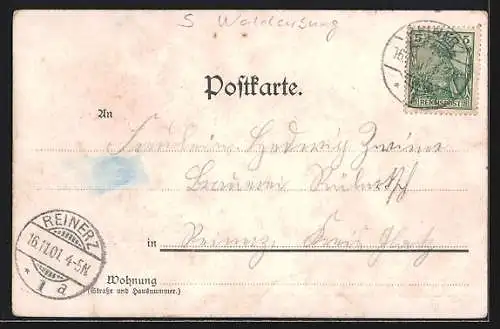 S Waldenburg
5 5
REICHSPOST
16.
Postkarte.
An
Fräulein Hedwig Zwiner
Brauerei
in Reinerz Kreis Glatz
REINERZ
16.11.01. 4-5N.
* 1 a
Wohnung
(Straße und Hausnummer.)